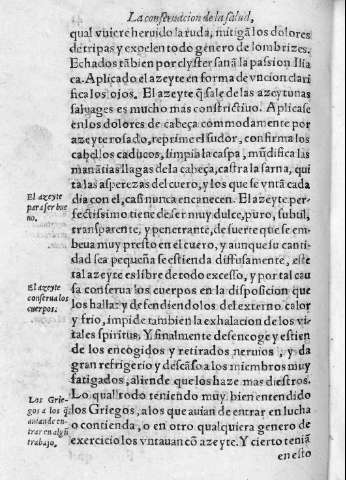 La conseruacion de la salud,
qual vuiere heruido la ruda, mitigã los dolores
de tripas y expelen todo género de lombrizes.
Echados tãbien por clyster sanã la passion Ilia
ca. Aplicado el azeyte en forma de vncion clari
fica los ojos. El azeyte q̃ sale de las azeytunas
saluages es mucho mas constrictiuo. Aplicase
en los dolores de cabeça commodamente por
azeyte rosado, reprime el sudor, confirma los
cabellos caducos, limpia la caspa, mũdifica las
manantias llagas de la cabeça, castra la sarna, qui
ta las asperezas del cuero, y los que se vntã cada
dia con el, casi nunca encanecen. El azeyte per-
fectissimo tiene de ser muy dulce, puro, subtil,
transparente, y penetrante, de suerte que se em
beua muy presto en el cuero, y aunque su canti
dad sea pequeña se estienda diffusamente, este
tal azeyte es libre de todo excesso, y por tal cau
sa conserua los cuerpos en la disposicion que
los halla: y defendiendolos del externo calor
y frio, impide tambien la exhalacion de los vi-
tales spiritus. Y finalmente desencoge y estien
de los encogidos y retirados neruios, y da
gran refrigerio y descãso a los miembros muy
fatigados, aliende que los haze mas diestros.
Lo qual todo teniendo muy bien entendido
los Griegos, a los que auian de entrar en lucha
o contienda, o en otro qualquiera genero de
exercicio los vntauan cõ azeyte. Y cierto teniã
en esto
El azeyte
para ser bue
no.
El azeyte
conserua los
cuerpos.
Los Grie-
gos a los q̃
auian de en-
trar en algũ
trabajo.